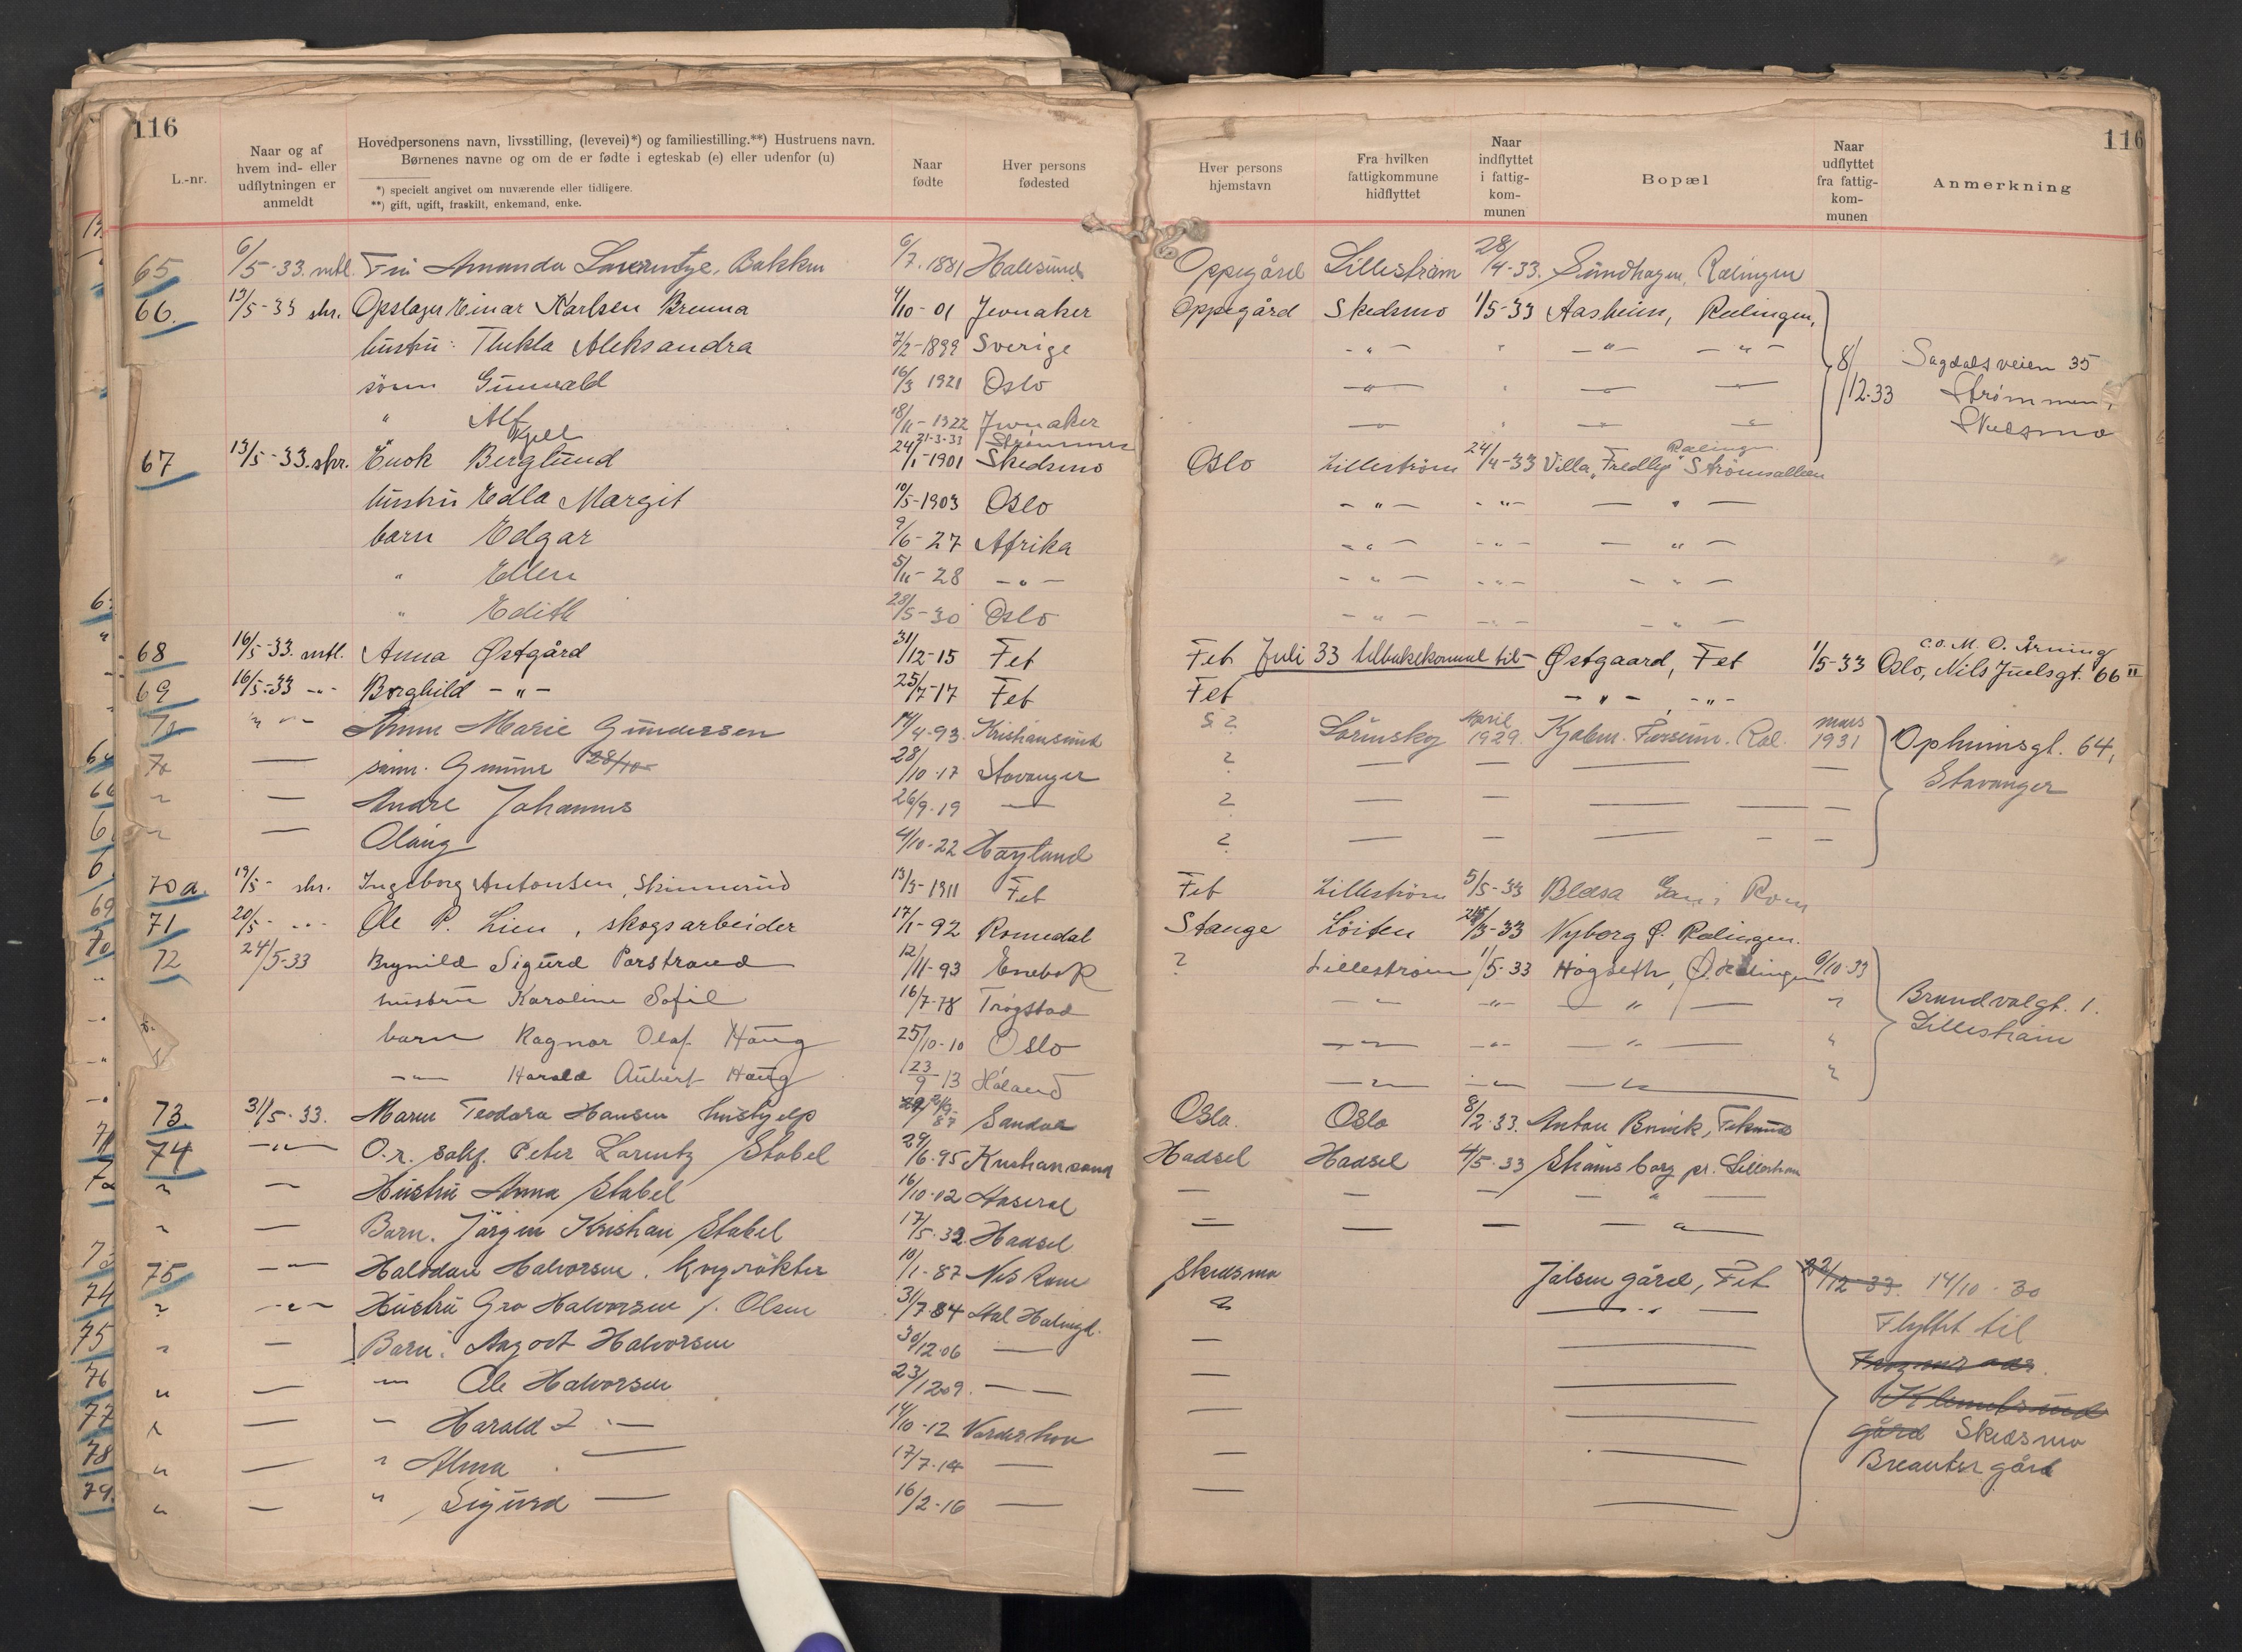 116
116
L.-nr.
Naar og af hvem ind- eller udflytningen er anmeldt
Hovedpersonens navn, livsstilling, (levevei)*) og familiestilling.**) Hustruens navn.
Børnenes navne og om de er fødte i egteskab (e) eller udenfor (u)
*) specielt angivet om nuværende eller tidligere.
**) gift, ugift, fraskilt, enkemand, enke.
Naar fødte
Hver persons fødested
Hver persons hjemstavn
Fra hvilken fattigkommune hidflyttet
Naar indflyttet i fattig-kom-munen
Bopæl
Naar udflyttet fra fattig-kom-munen
Anmerkning
65 6/5-33. mtl. Frü Amanda Bakken 6/7. 1881 Oppegård Lilleström 28/4-33. Sundhagen, Rælingen
66. 13/5-33 skr. Opslager Einar Karlsen Brenna 4/10-01 Jevnaker Oppegård Skedsmo 1/5-33 Aasheim, Rælingen,
hustru: Thekla Aleksandra 7/2-1899 Sverige - " - " - " - - " -
sönn Gunvald 16/3 1921 Oslo 8/12.33 Sagdalsveien 35
" Alf 18/11-1922 Jevnaker Strømmen,
Kjell 21-3-33 Strømmen Skedsmo
67 13/5-33. skr. Enok Berglund 24/1-1901 Skedsmo Oslo Lilleström 24/4-33 Villa "Fredly" Strömsalleen Rælingen
hustru Edla Margit 10/5-1903 Oslo - " - - " - - " -
barn Edgar 9/6-27 Afrika - " - - " - - " -
" Ellen 5/11-28 - " - - " - - " - - " -
" Edith 28/5-30 Oslo - " - - " - - " -
68 16/5-33. mtl. Anna Østgård 31/12-15 Fet Fet Juli 33 tilbakekommet til Østgaard, Fet 1/5-33 c.o. M. O. Årning
69 16/5-33 - " - Borghild - " - 25/7-17 Fet Fet - " - - " - Oslo, Nils Juelsgt. 66 II
70 " - " - Anne Marie Gundersen 14/4-93. Kristiansund ? Lörenskog April 1929. Ræl. mars 1931 64,
70 — sönn. Gunnar 28/10 28/10-17 Stavanger ? — — — — Stavanger
" — Andre Johannes 26/9-19 — ? — — — —
" — Olaug 4/10-22 Høyland ? — — — —
70a. 19/5- skr. Ingeborg Antonsen, Skinnerud 13/3-1911 Fet Fet Lilleström 5/5-33
71 20/5- - " - Ole P. Lien, skogsarbeider 17/1-92 Romedal Stange Löiten 3-33 Nyborg Ø. Rælingen.
72 24/5-33 Brynild Sigurd Parstrand 12/11-93 Enebok ? Lilleström 1/5-33 Høgseth, Ø. Rælingen 9/10-33
hustru Karoline Sofie 16/7-78 Trøgstad - " - - " - - " - " Brandvalgt. 1.
barn Ragnar Olaf Haug 25/10-10 Oslo - " - - " - - " - " Lilleström
- " - Harald Aubert Haug 23/9 13 Høland - " - - " - - " - "
73. 31/5-33. Maren Teodora Hansen hushjelp 87 Sandar Oslo. Oslo 8/2.33. Anton
74 - " - O.r. sakf. Peter Larentz Stabel 29/6.95 Kristiansand Hadsel Hadsel 4/5.33 Strömsborg pr. Lilleström
" — Hustru Anna Stabel 16/10-02 Aaseral — — — - " -
" — Barn. Jörgen Kristian Stabel 17/5.32 Hadsel — — — - " -
75 - " - Halvdan Halvorsen. 10/1-87 Nes Rom Skedsmo Jølsen gård, Fet 12-33. 14/10-30
" - " - Hustru Gro Halvorsen f. Olsen 31/7 84 Aal Halingd. " - " - Flyttet til
" — Barn: Aagodt Halvorsen 30/12.06 — — —
" — " Ole Halvorsen 23/12 09. — — —
" — " Harald 14/10-12 Norderhov — — gård Skedsmo
" — " Alma — 17/7.14 — — — Breauter gård
" — " Sigurd — 16/2-16 — — —